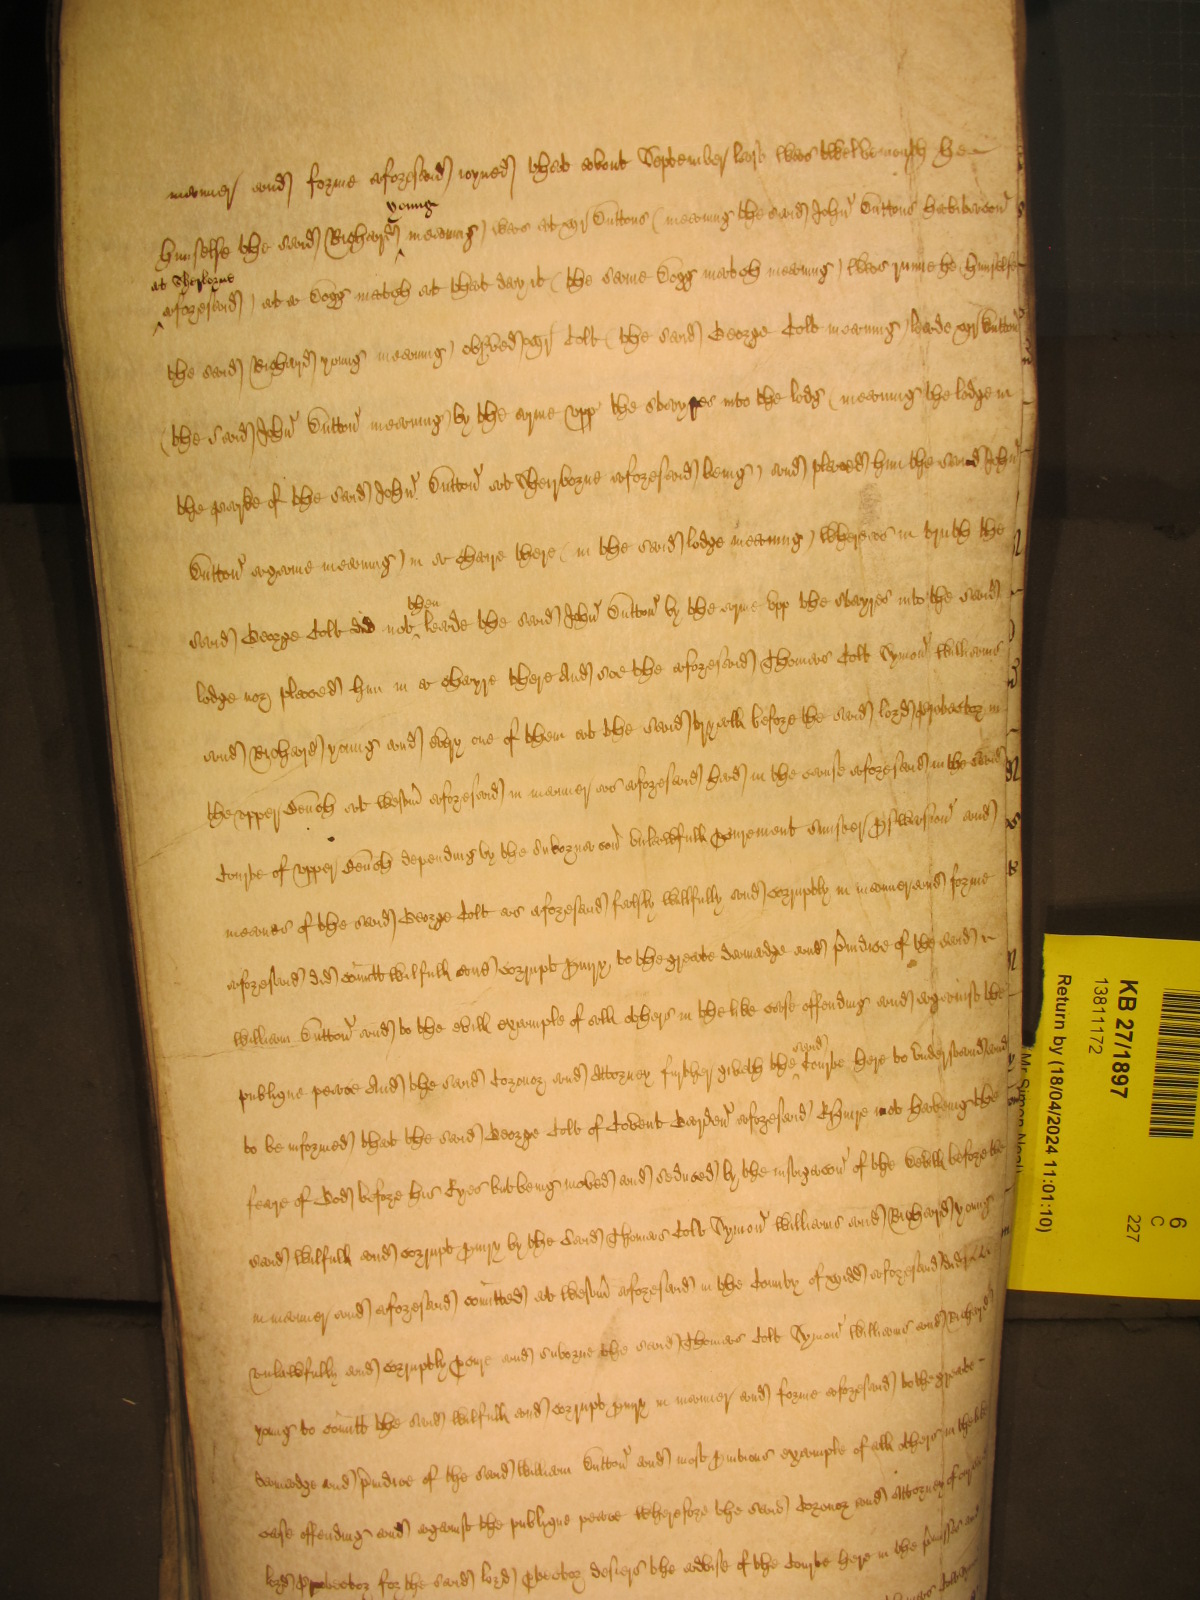 manner and forme aforesaid ioyned that about September last was twelvemonth he
young
himselfe the said Richard meaning) was at Mr Duttons (meaning the said John Duttons habitacon
at Sherborne
aforesaid) at a Dogg match at that day it (the same Dogg match meaning) was he himselfe
the said Richard young meaning) observed Mr Colt (the said George Colt meaning) leade Mr Dutton
(the said John Dutton meaning) by the arme upp the stayres into the lodg (meaning the lodge in
the parke of the said John Dutton at Sherborne aforesaid being) and placed him the said John
Dutton againe meaning) in a chaire there (in the said lodge meaning) whereas in truth the
then
said George Colt did not leade the said John Dutton by the arme upp the stayres into the said
lodge nor placed him in a chayre there And soe the aforesaid Thomas Colt Symon Williams
and Richard young and evry one of them at the said tryall before the said lord protector in
the upper Bench at Westm aforesaid in manner as aforesaid had in the cause aforesaid in the said
Courte of upper Bench depending by the subornacon unlawfull procurement sinister pswasion and
meanes of the said George Colt as aforesaid falsly willfully and corruptly in manner and forme
aforesaid did comitt wilfull and corrupt piury to the greate damadge and piudice of the said
William Dutton and to the evill example of all others in the like case offending and against the
said
publique peace And the said Coronor and Attorney further giveth the Courte here to understand and
to be informed that the said George Colt of Covent Garden aforesaid Esquire not haveing the
feare of God before his Eyes but being moved and seduced by the instigacon of the Devill before the
said wilfull and corrupt piury by the said Thomas Colt Symon Williams and Richard young
in manner and aforesaid comitted at Westm aforesaid in the County of Midd aforesaid did
unlawfully and corruptly pcure and suborne the said Thomas Colt Symon Williams and Richard
young to comitt the said wilfull and corrupt piury in manner and forme aforesaid to the greate
damadge and piudice of the said William Dutton and most pnitious example of all others in the like
case offending and against the publique peace Wherefore the said Coronor and Attorney of
lord Protector for the said lord Protector desiers the advise of the Courte here in the pmisses and
KB 27/1897
13811172
Return by (18/04/2024 11:01:10)
6
C
227